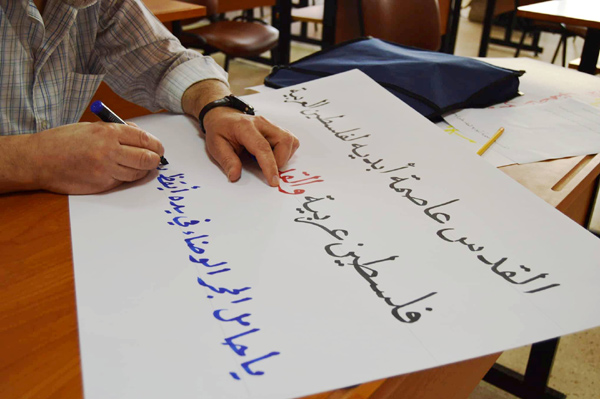 القدس عاصمة أبدية لفلسطين العربية
فلسطين عربية
يا حامل الحجر الوضاء في يده أيقظ